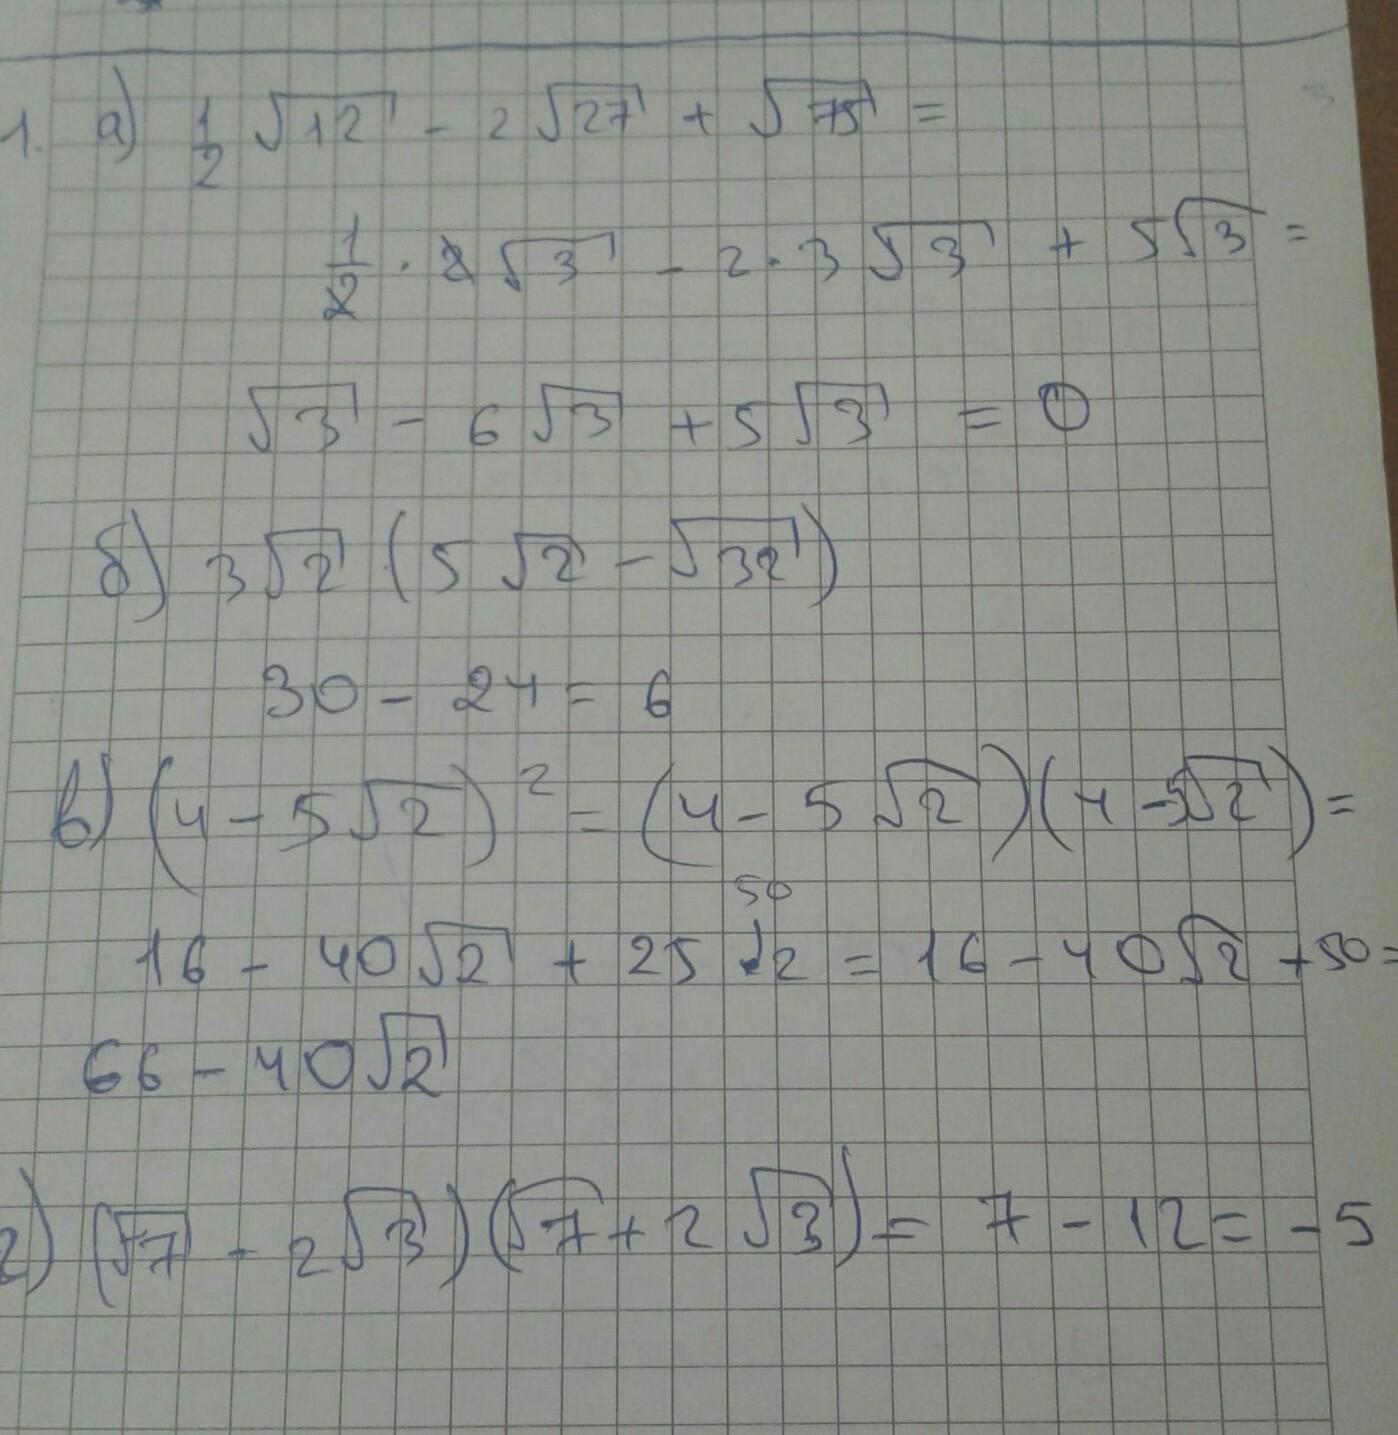 1. а) 1/2 √12 - 2√27 + √75 =
1/2 · 2√3 - 2 · 3√3 + 5√3 =
√3 - 6√3 + 5√3 = 0
б) 3√2 (5√2 - √32)
30 - 24 = 6
в) (4 - 5√2)² = (4 - 5√2)(4 - 5√2) =
50
16 - 40√2 + 25 · 2 = 16 - 40√2 + 50 =
66 - 40√2
г) (√7 - 2√3)(√7 + 2√3) = 7 - 12 = -5